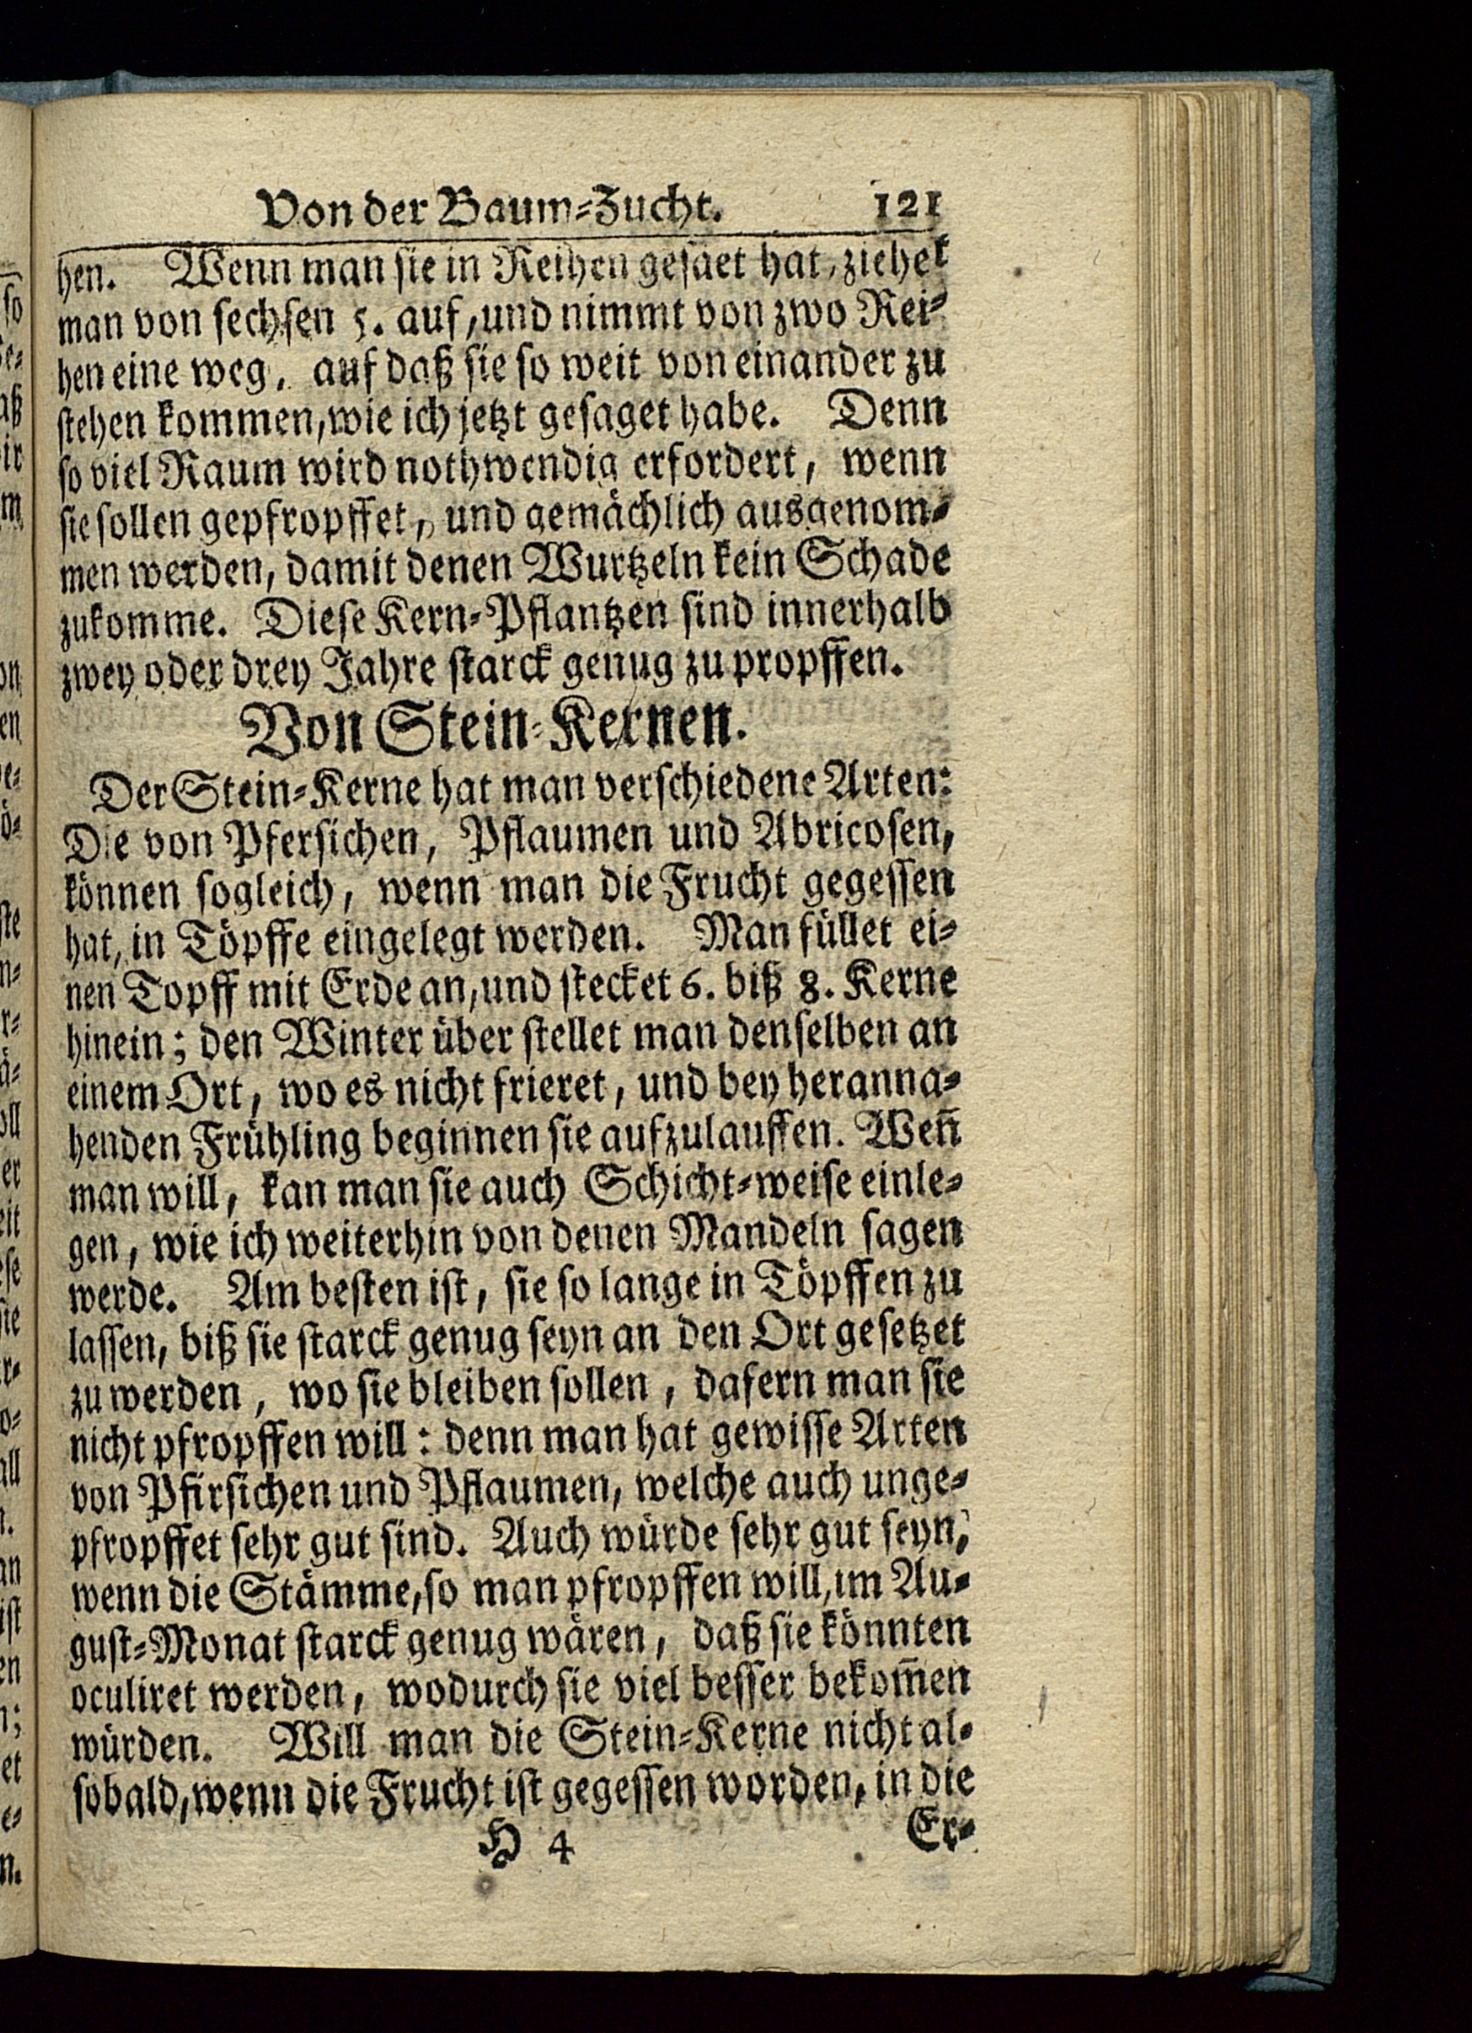 Von der Baum-Zucht. 121
hen. Wenn man sie in Reihen gesäet hat, ziehet
man von sechsen 5. auf, und nimmt von zwo Rei-
hen eine weg, auf daß sie so weit von einander zu
stehen kommen, wie ich jetzt gesaget habe. Denn
so viel Raum wird nothwendig erfordert, wenn
sie sollen gepfropffet, und gemächlich ausgenom-
men werden, damit denen Wurtzeln kein Schade
zukomme. Diese Kern-Pflantzen sind innerhalb
zwey oder drey Jahre starck genug zu propffen.
Von Stein-Kernen.
Der Stein-Kerne hat man verschiedene Arten:
Die von Pfersichen, Pflaumen und Abricosen,
können sogleich, wenn man die Frucht gegessen
hat, in Töpffe eingelegt werden. Man füllet ei-
nen Topff mit Erde an, und stecket 6. biß 8. Kerne
hinein; den Winter über stellet man denselben an
einem Ort, wo es nicht frieret, und bey heranna-
henden Frühling beginnen sie aufzulauffen. Weñ
man will, kan man sie auch Schicht-weise einle-
gen, wie ich weiterhin von denen Mandeln sagen
werde. Am besten ist, sie so lange in Töpffen zu
lassen, biß sie starck genug seyn an den Ort gesetzet
zu werden, wo sie bleiben sollen, dafern man sie
nicht pfropffen will: denn man hat gewisse Arten
von Pfirsichen und Pflaumen, welche auch unge-
pfropffet sehr gut sind. Auch würde sehr gut seyn,
wenn die Stämme, so man pfropffen will, im Au-
gust-Monat starck genug wären, daß sie könnten
oculiret werden, wodurch sie viel besser bekom̃en
würden. Will man die Stein-Kerne nicht al-
sobald, wenn die Frucht ist gegessen worden, in die
H 4 Er-